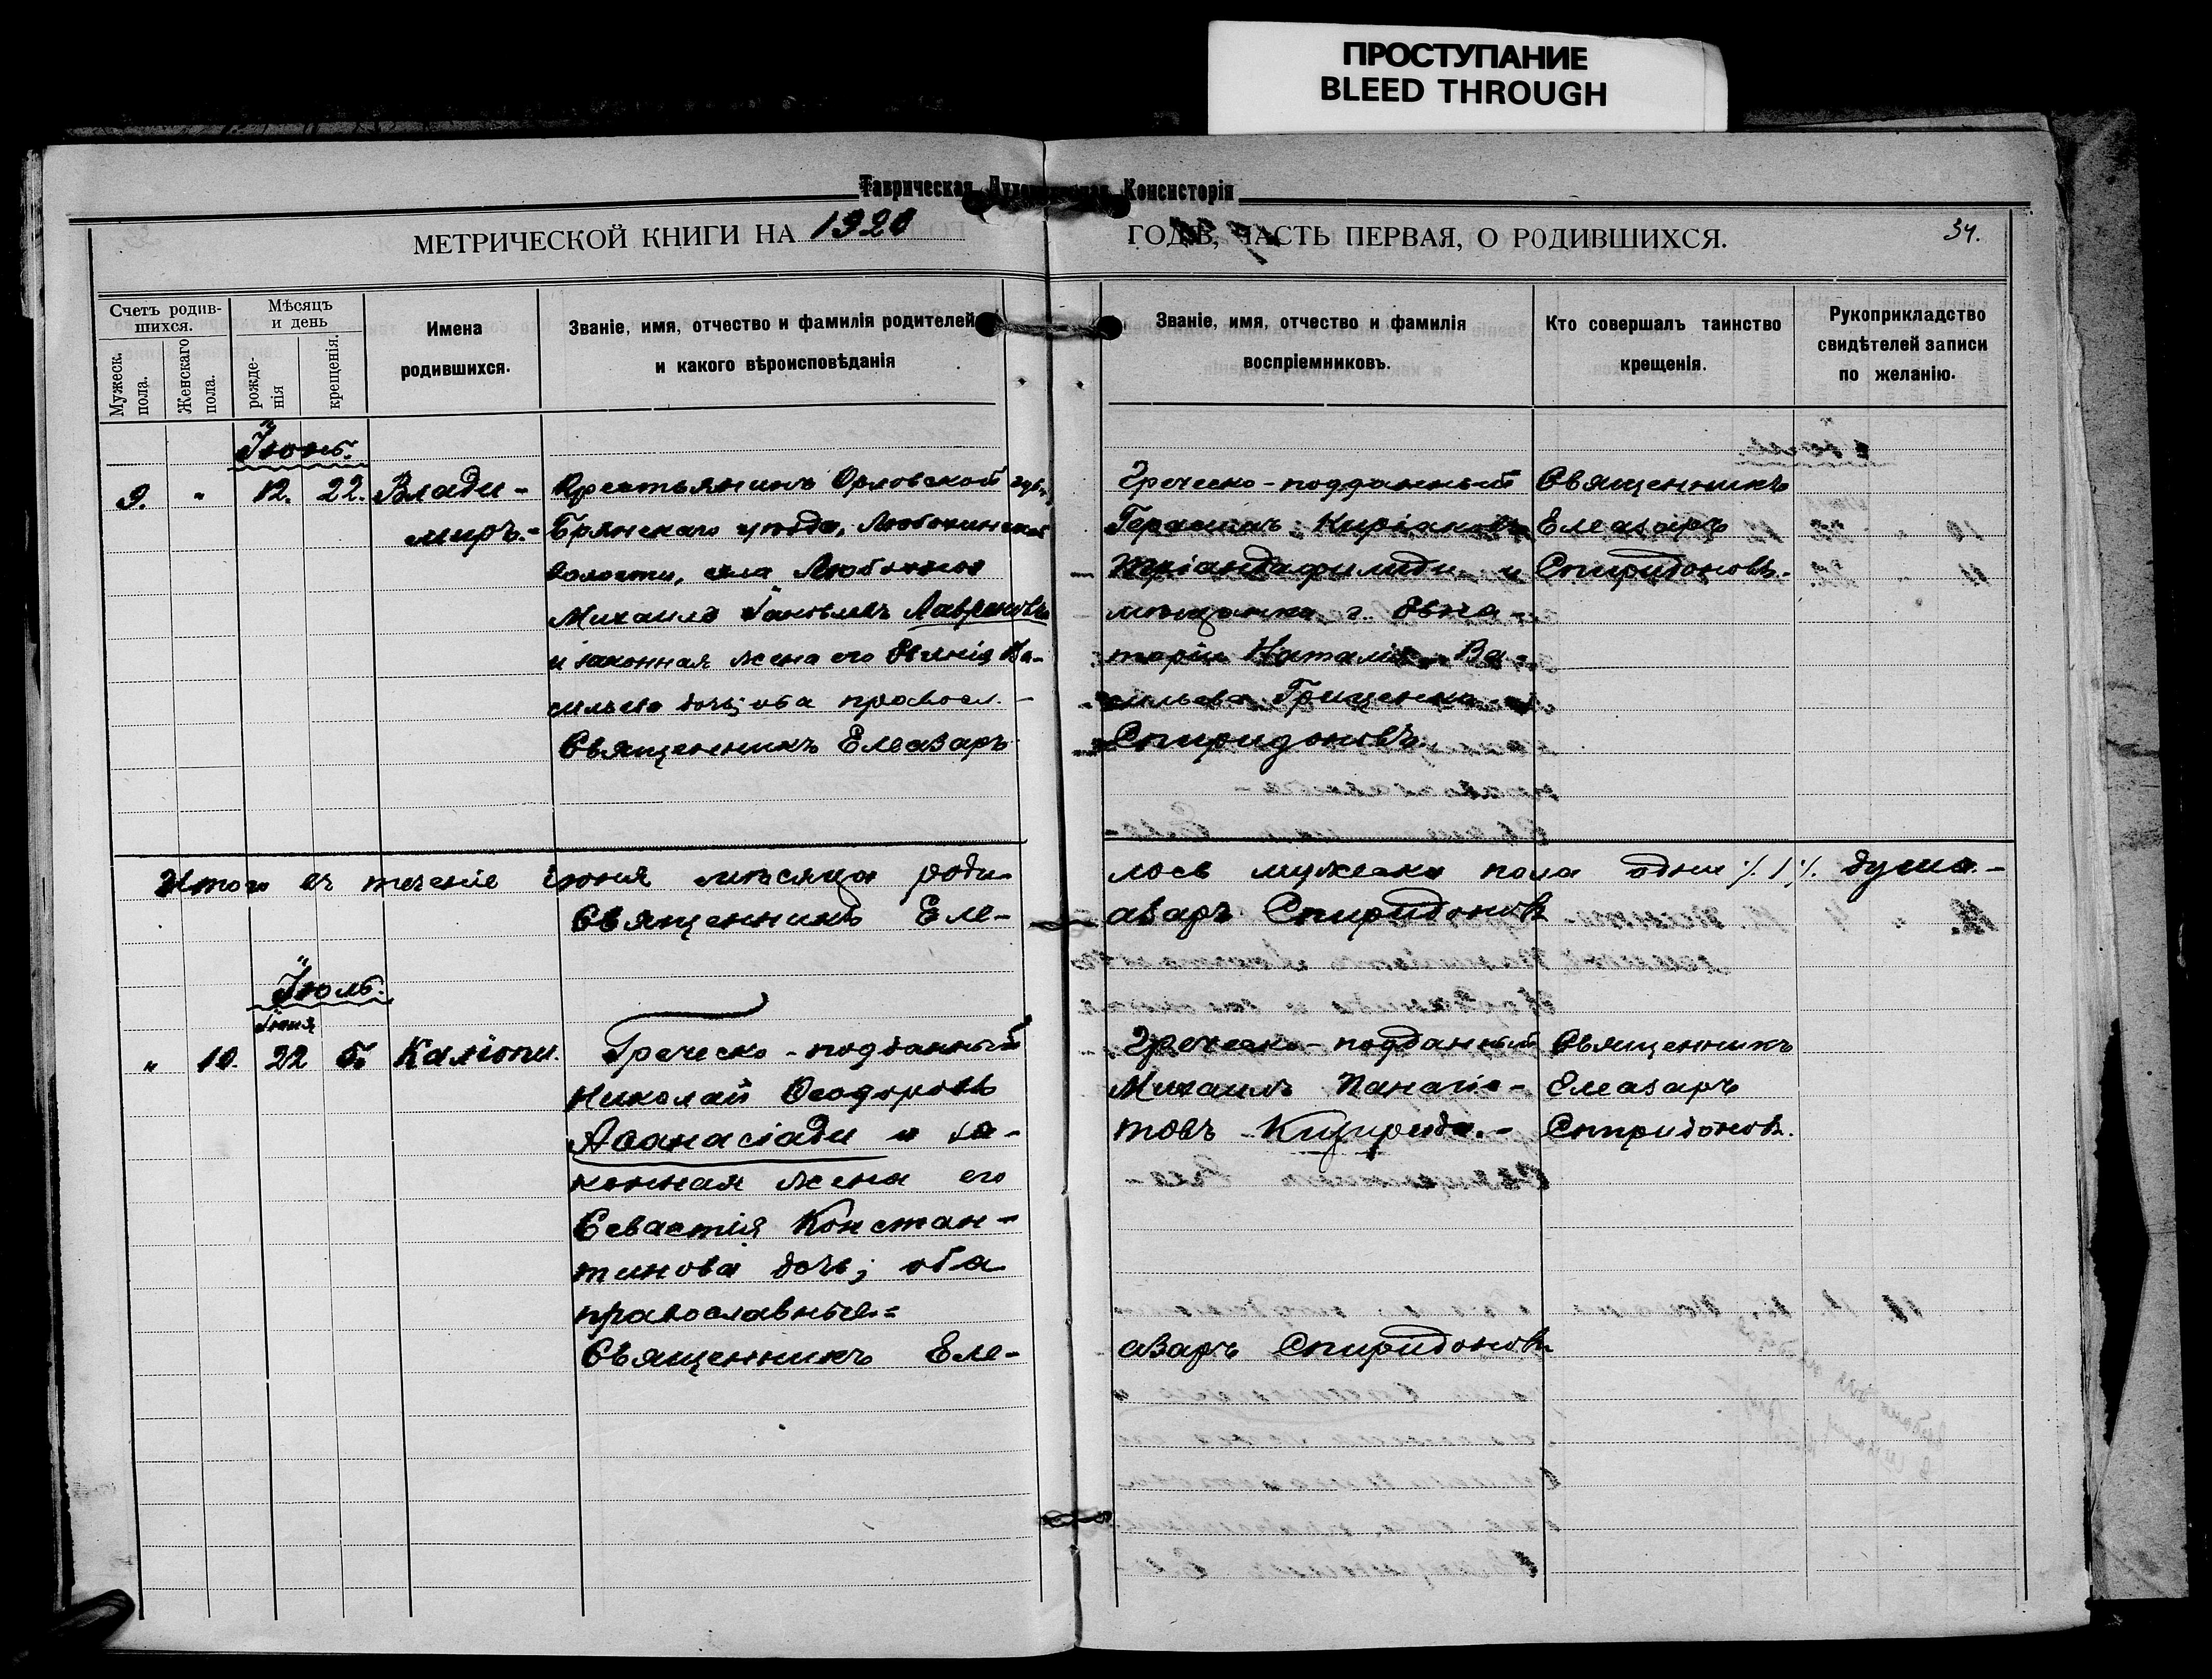 ПРОСТУПАНИЕ
BLEED THROUGH
Таврическая Духовная Консисторія
МЕТРИЧЕСКОЙ КНИГИ НА 1920 ГОДЪ, ЧАСТЬ ПЕРВАЯ, О РОДИВШИХСЯ.
34.
Счетъ родив-
шихся.
Мужеск.
пола.
Женскаго
пола.
Мѣсяцъ
и день
рожде-
нія
крещенія.
Имена
родившихся.
Званіе, имя, отчество и фамилія родителей
и какого вѣроисповѣданія
Званіе, имя, отчество и фамилія
воспріемниковъ.
Кто совершалъ таинство
крещенія.
Рукоприкладство
свидѣтелей записи
по желанію.
Іюнь.
9. " 12. 22. Влади-
миръ.-
Крестьянинъ Орловской губ.,
Брянскаго уѣзда,
волости, села
Михаилъ Іаковлевъ Лавреновъ
и законная жена его Ва-
сильева дочь; оба правосл.-
Священникъ Елеазаръ
Греческо-подданный
Герасимъ
и
мѣщанка г. Евпа-
торіи Наталія Ва-
сильева Грищенко
Спиридоновъ.
Священникъ
Елеазаръ
Спиридоновъ.
Итого въ теченіе іюня мѣсяца роди-
лось мужеска пола одна ./.1./. душа.-
Священникъ Еле-
азаръ Спиридоновъ
Іюль.
Іюня
" 10. 22 5 Каліопи.
Греческо-подданный
Николай Ѳеодоровъ
Аѳанасіади и за-
конная жена его
Севастія Констан-
тинова дочь; оба
православные.-
Священникъ Еле-
Греческо-подданный
Михаилъ Панагіо-
товъ
азаръ Спиридоновъ
Священникъ
Елеазаръ
Спиридоновъ.